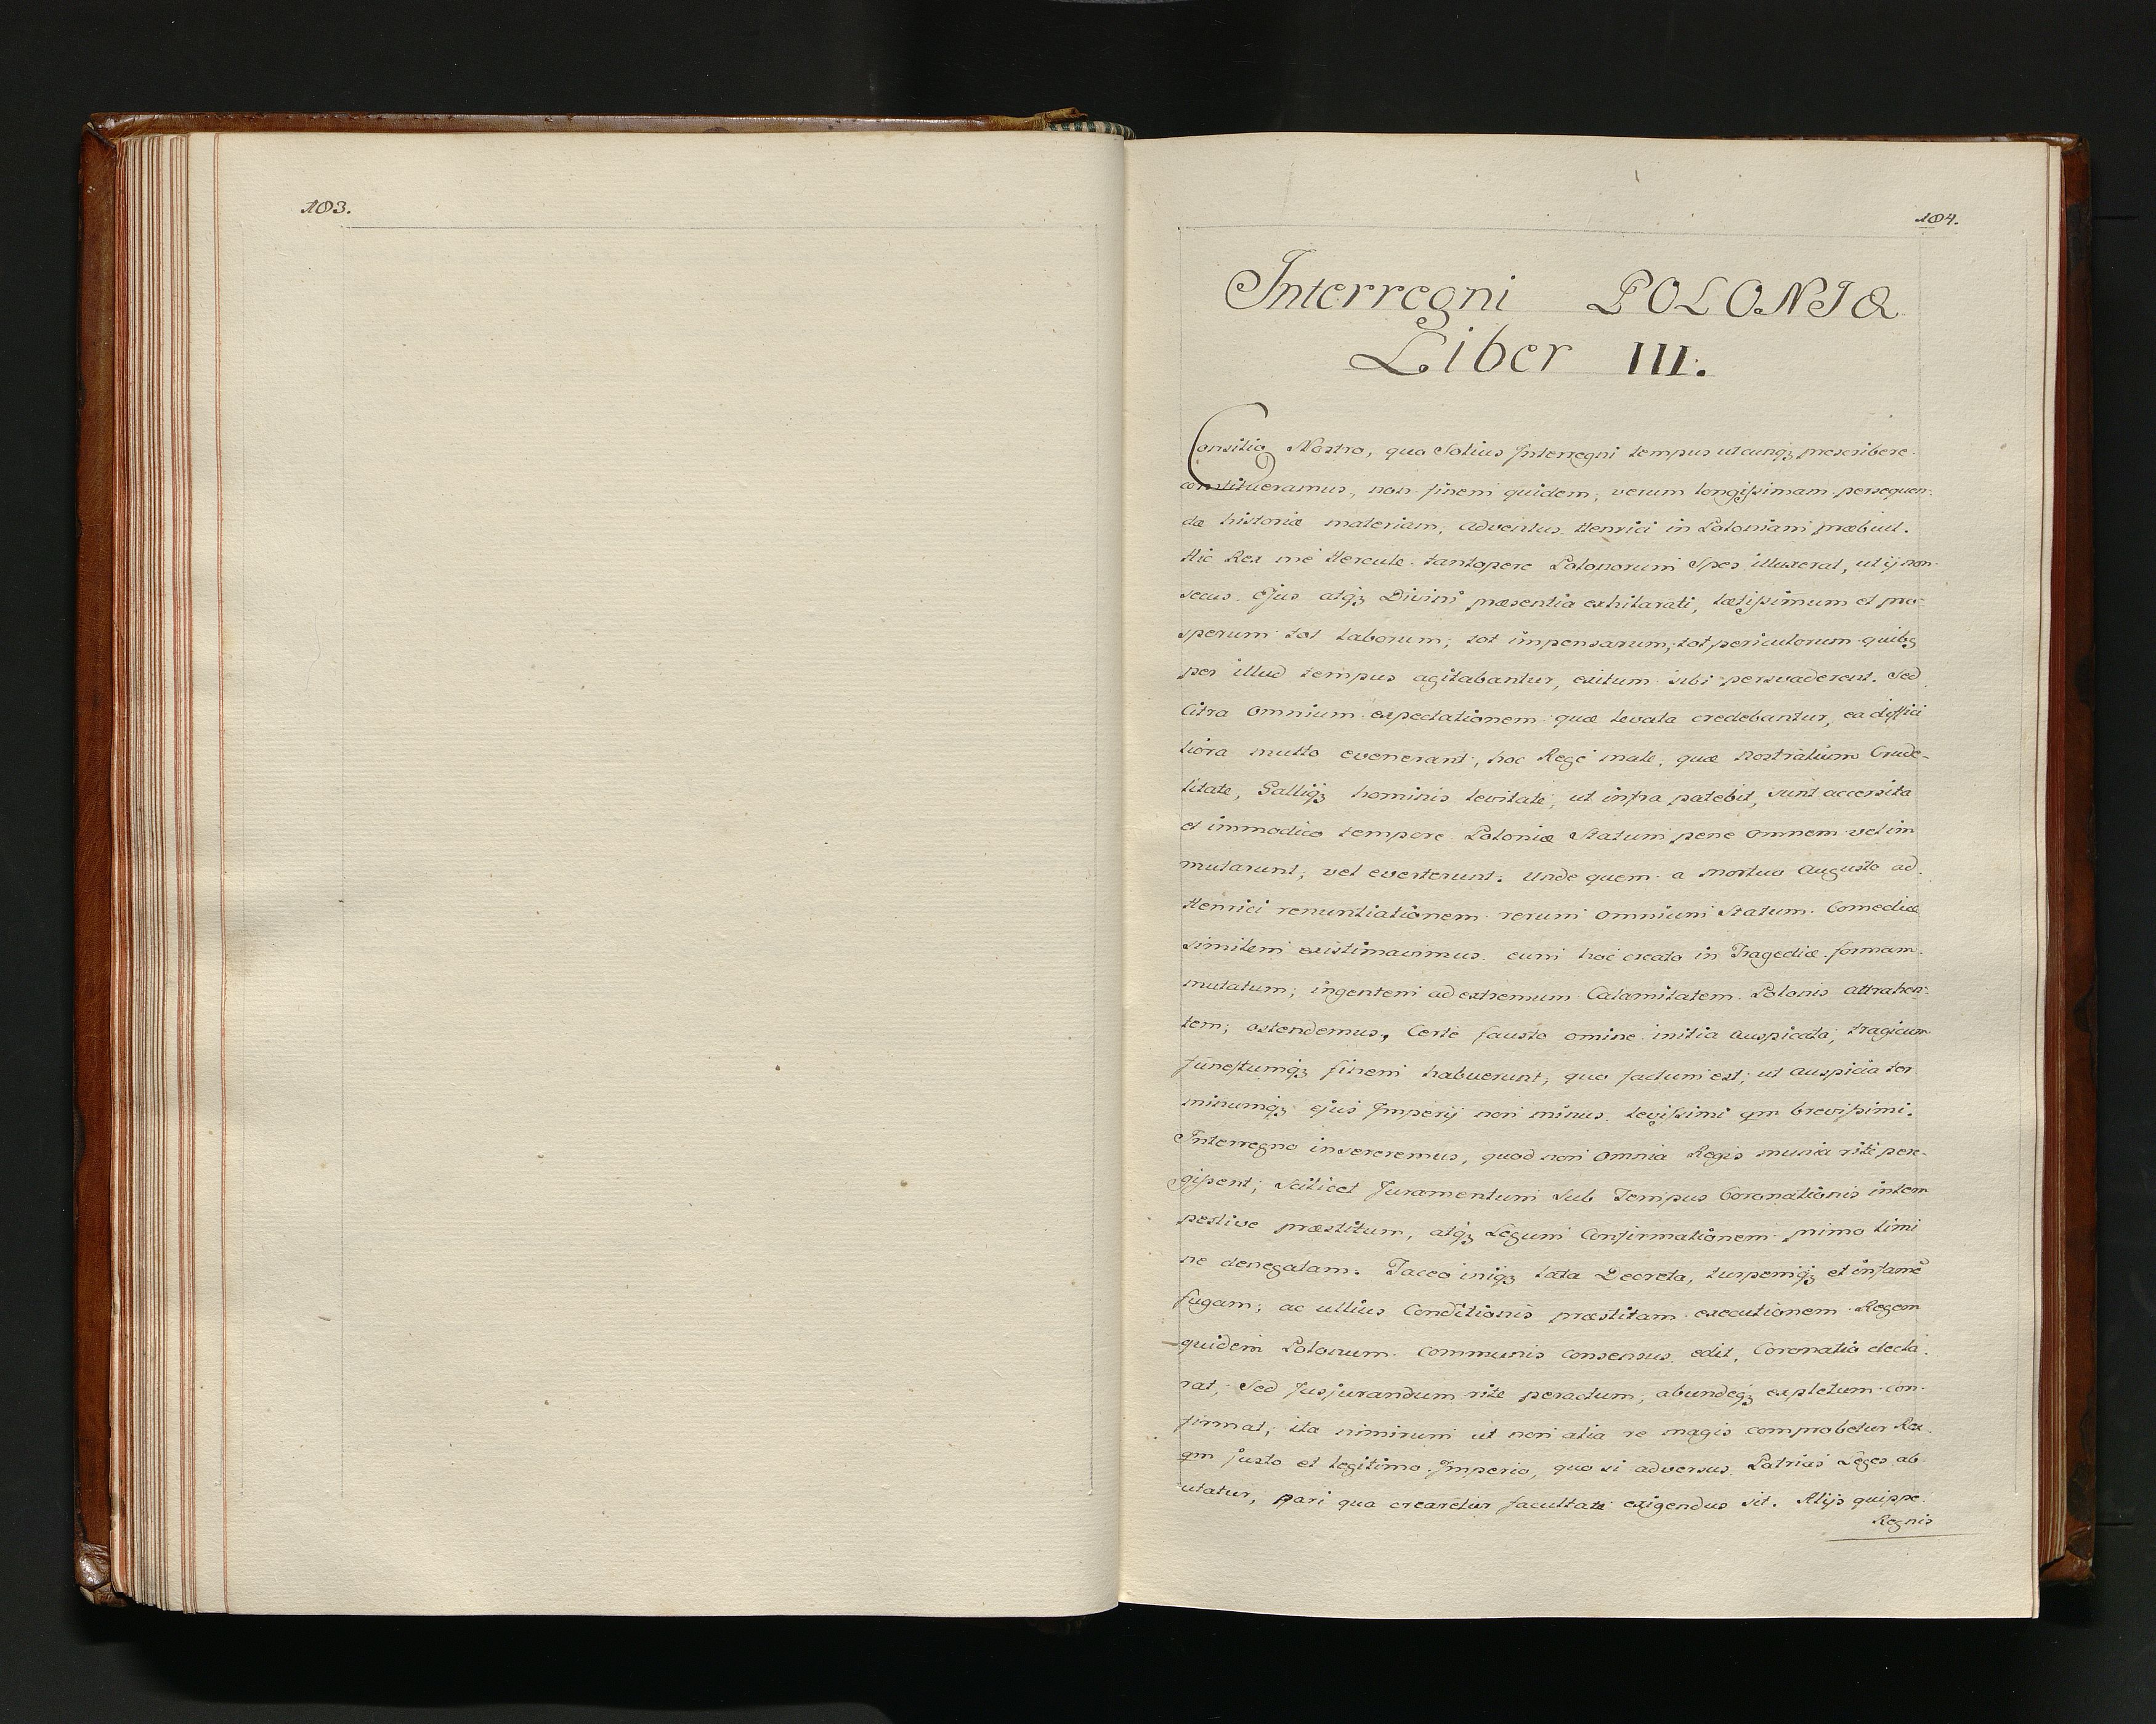 183.
184.
Interregni POLONIÆ
Liber III.
Consilio Nostro, quo Solius Interregni tempus utcunqȝ præscribere
constitueramus, non finem quidem, verum longissimam persequen-
dæ historiæ materiam, adventus Henrici in Poloniam præbuit.
Hic Rex me Hercule tantopere Polonorum Spes illuxerat, ut ij non
secus ejus atqȝ Divini præsentia exhilarati, lætissimum et pro-
sperum tot laborum, tot impensarum, tot periculorum quibȝ
per illud tempus agitabantur, exitum sibi persvaderent. Sed
Citra omnium expectationem quæ levata credebantur, ea diffici
liora multo evenerant, hoc Rege male, quæ nostratium Crude-
litate, Galliqȝ hominis levitate, ut infra patebit, sunt accersita
et immodico tempore Poloniæ Statum pene omnem vel im
mutarunt, vel everterunt. Unde quem a mortuo Augusto ad
Henrici renuntiationem rerum omnium Statum Comediæ
similem existimavimus eum hoc creato in Tragediæ formam
mutatum, ingentem ad extremum Calamitatem Polonis attrahen-
tem, ostendemus. Certe fausto omine initia auspicata, tragicum
funestumqȝ finem habuerunt, quo factum est, ut auspicia ter
minumqȝ ejus Imperij non minus levissimi qm brevissimi
Interregno insereremus, quod non omnia Regis munia rite pere-
gissent, scilicet Juramentum sub Tempus Coronationis intem
pestive præstitum, atqȝ Legum Confirmationem primo limi
ne denegatam. Taceo iniqȝ lata Decreta, turpemqȝ et infamē
fugam, ac ullius Conditionis præstitam executionem Regem
quidem Polonum communis consensus edit, Coronatio decla
rat, Sed Jusjurandum rite peractum, abundeqȝ expletum con-
firmat, ita nimirum ut non alia re magis comprobetur Rex
qm justo et legitimo Imperio, quo si adversus Patrias Leges ab
utatur, pari qua crearetur facultate exigendus sit. Alijs quippe
Regnis